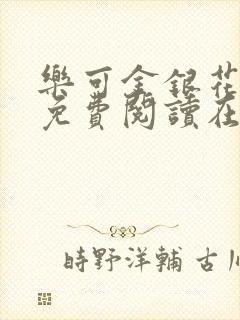 樂可金銀花
免費閱讀在
時野洋輔 古川